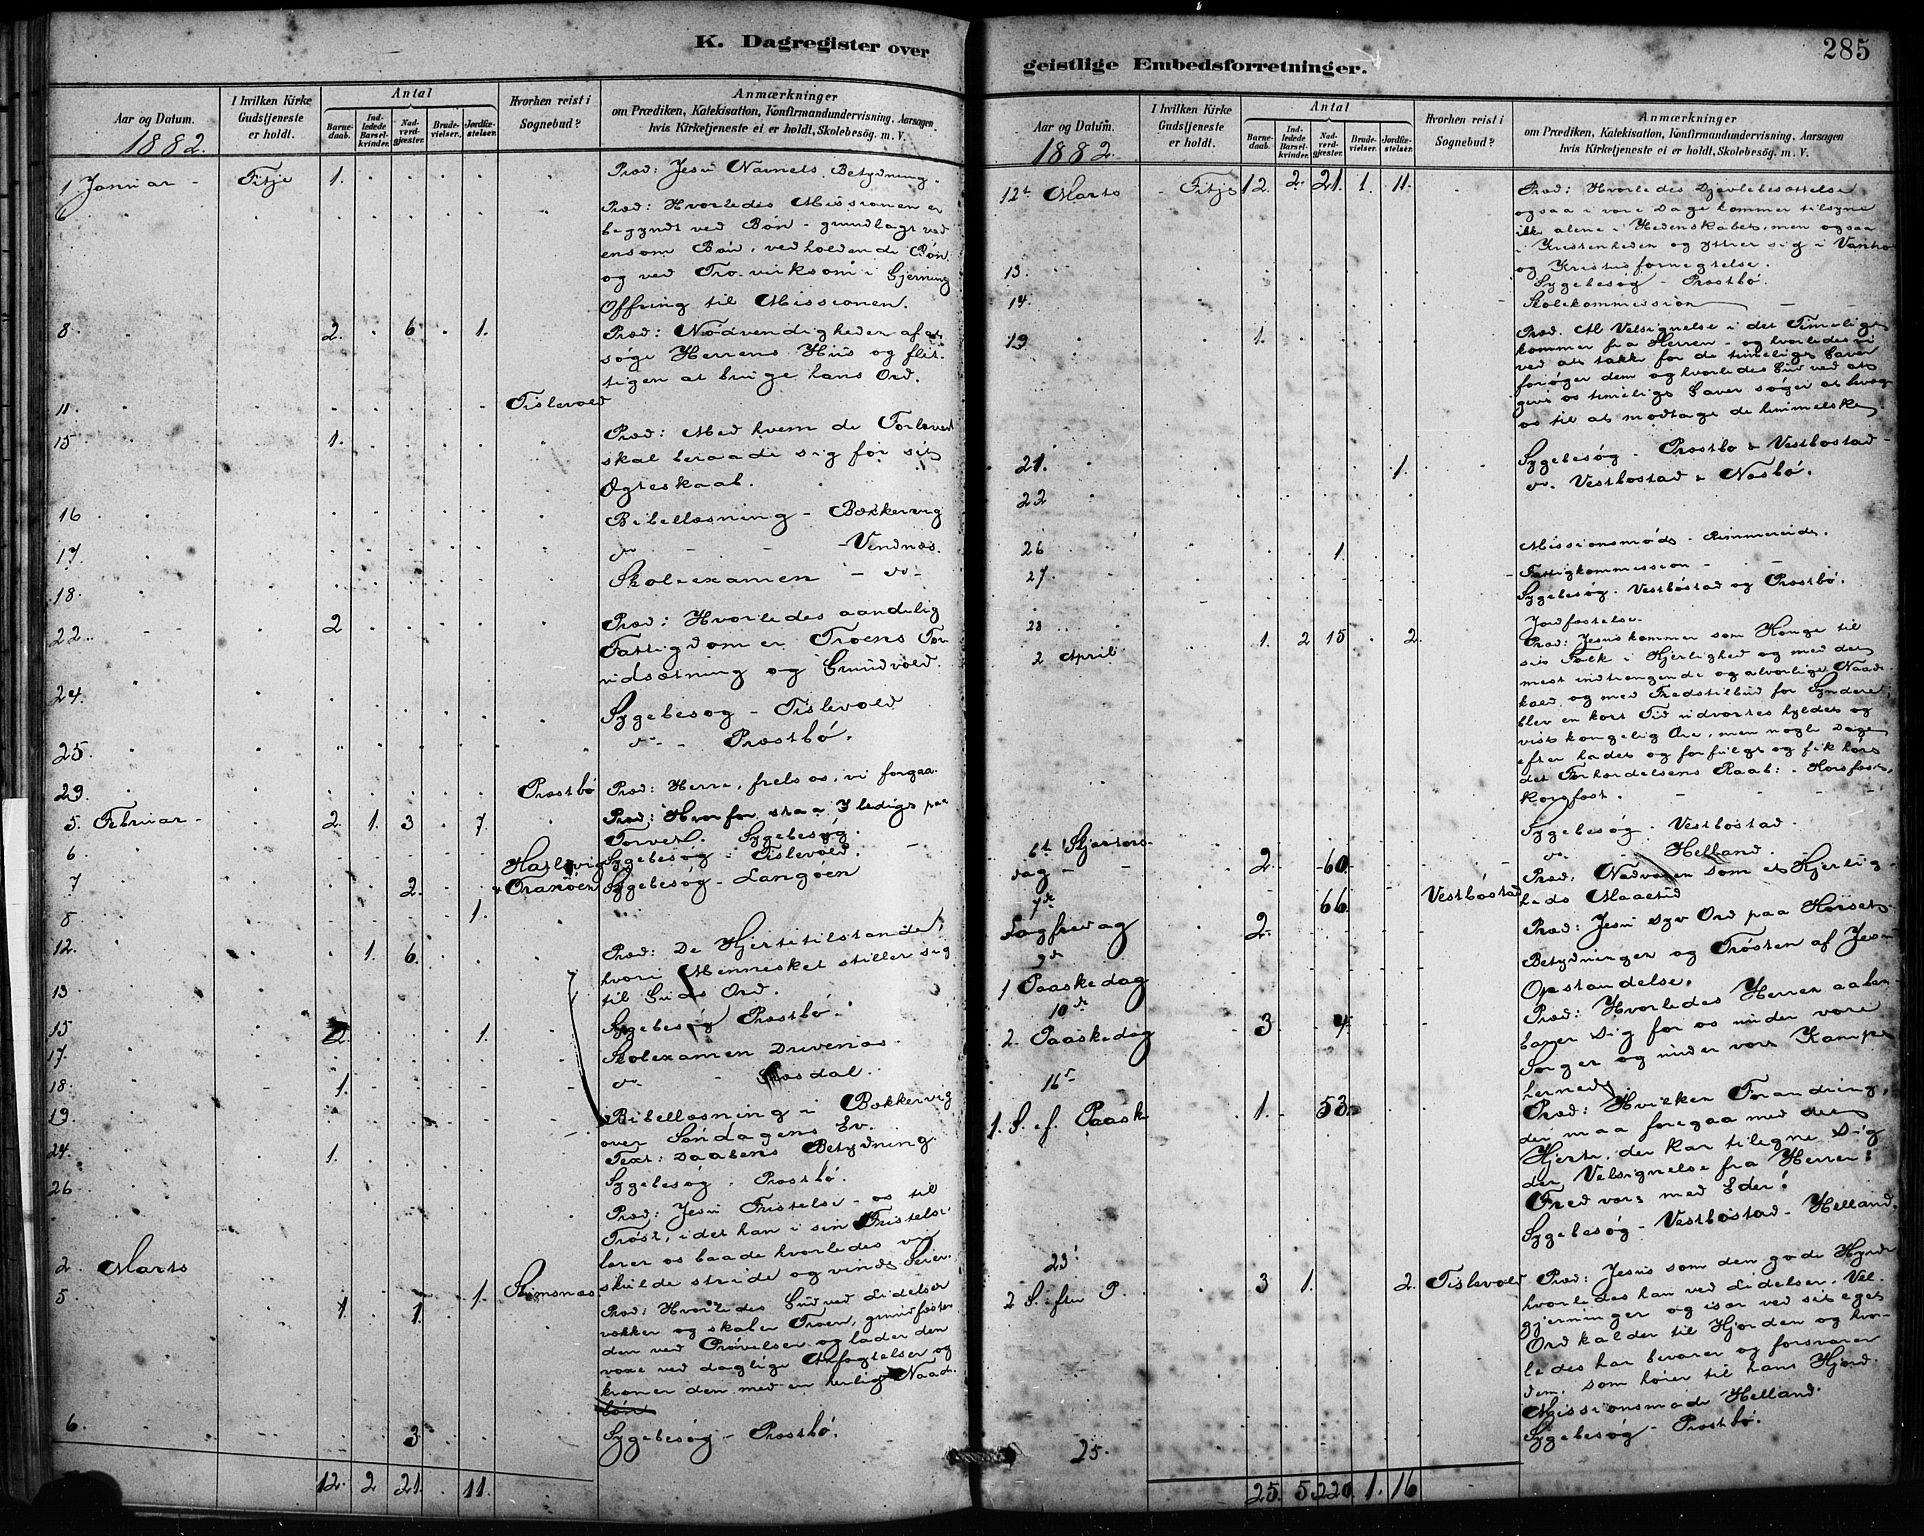 K. Dagregister over
Aar og Datum.
1882.
I hvilken Kirke
Gudstjeneste
er holdt.
Antal
Barne-
daab.
Ind-
ledede
Barsel-
kvinder.
Nad-
verd-
gjester.
Brude-
vielser.
Jordfæ-
stelser.
Hvorhen reist i
Sognebud?
Anmærkninger
om Prædiken, Katekisation, Konfirmandundervisning, Aarsagen,
hvis Kirketjeneste ei er holdt, Skolebesög. m. V.
1 Januar - Fitje 1. Præd: Jesu Navnets Betydning.
6 Præd: Hvorledes Missionen er
begyndt ved Bøn - grundlagt ved
ensom Bøn, vedholdende Bøn
og ved Tro virksom i Gjerning
Offring til Missionen.
8. 2. 6. 1. Præd: Nødvendigheden af at
søge Herrens Hus og flit-
tigen at bruge hans Ord.
11. Tislevold
15 1. Præd: Med hvem de Forlovede
skal beraade sig for sit
Ægteskaab.
16 Bibellæsning - Bækkervig
17. do - - Vendnæs.
18. Skoleexamen - do -
22. 2 Præd: Hvorledes aandelig
Fattigdom er Troens For-
udsætning og Grundvold.
24. Sygebesøg - Tislevold
25. do - Præstbø.
29. Præstbø Præd: Herre, frels os, vi forgaa.
5. Februar - 2. 1. 3 7. Præd: Hvorfor staa I ledige paa
Torvet. Sygebesøg.
6. Sygebesøg - Tislevold.
7 2. Oranøen Sygebesøg - Langøen
8 1.
12. 1. 6. Præd: De Hjertetilstande,
hvori Mennesket stiller sig
til Guds Ord.
13 Sygebesøg Præstbø.
15 2. 1. Skolexamen Drevenæs.
17. do - dal.
18. 1. Bibellæsning i Bækkervig
19. over Søndagens Ev.
24. 1. Text: Daabens Betydning.
26 Sygebesøg; Præstbø.
Præd: Jesu Fristelse - os til
Trøst, idet han i sin Fristelse
lærer os baade hvorledes vi
skulde stride og vinde Seier.
2. Marts
5. 1 1. 1. Rimsnæs Præd: Hvorledes Gud ved Lidelser
vækker og skaber Troen, grundfæster
den ved Prøvelser og lader den
voxe ved daglige Anfægtelser og
kroner den med en herlig Naade-
løn
6. 3 Sygebesøg - Præstbø.
12. 2 21. 11.
geistlige Embedsforretninger.
285
Aar og Datum.
1882.
I hvilken Kirke
Gudstjeneste
er holdt.
Antal
Barne-
daab.
Ind-
ledede
Barsel-
kvinder.
Nad-
verd-
gjester.
Brude-
vielser.
Jordfæ-
stelser.
Hvorhen reist i
Sognebud?
Anmærkninger
om Prædiken, Katekisation, Konfirmandundervisning, Aarsagen
hvis Kirketjeneste ei er holdt, Skolebesög. m. V.
12te Marts - Fitje 12. 2. 21. 1. 11. Præd: Hvorledes Djævlebesættelse
ogsaa i vore Dage kommer tilsyne
ikke alene i Hedenskabet, men ogsaa
i Kristenheden og yttrer sig i Vantro
og Kristusfornegtelse.
13. Sygebesøg - Præstbø.
14. Skolekommission
19 1. Præd. Al Velsignelse i det Timelige
kommer fra Herren - og hvorledes vi
ved at takke for de timelige Gaver
forøger dem og hvorledes Gud ved at
give os timelige Gaver søger at bevæge
os til at modtage de himmelske.
21. 1. Sygebesøg - Præstbø & Vestbostad -
22 do. Vestbostad & Næsbø.
26 1. Missionsmøde - Rimmereide.
27. Fattigkommission -
Sygebesøg. Vestbøstad og Præstbø.
28 Jordfæstelse.
2 April 1. 2 15 2. Præd: Jesus kommer som Konge til
sit Folk i Kjærlighed og med det
mest indtrængende og alvorlige Naade-
kald og med Fredstilbud for Syndere;
blev en kort Tid udvortes hyldet og
vist kongelig Ære, men nogle Dage
efter hadet og forfulgt og fik høre
det Forhærdelsens Raab: - Korsfæst,
korsfæst.
Sygebesøg. Vestbøstad.
do - Helland.
6te Skjærtors-
dag - 2. 60. Præd: Nadveren som et Kjærlig-
heds Maaltid
7de
Langfredag 2. 66. Vestbøstad Præd: Jesu syv Ord paa Korset.
9de
1 Paaskedag Betydningen og Trøsten af Jesu
Opstandelse.
10de
2. Paaskedag 3 4. Præd: Hvorledes Herren aaben-
barer sig for os under vore
Sorger og under vore Kampe
hernede
16de
1. S. e. f. Paask 1. 53. Præd: Hvilken Forandring,
der maa foregaa med det
Hjerte, der kan tilegne sig
den Velsignelse fra Herren:
Fred være med Eder!
Sygebesøg - Vestbøstad - Helland.
23
2 S. efter P. 3 1. 2. Tislevold Præd: Jesus som den gode Hyrde
hvorledes han ved Lidelser, Vel-
gjerninger og især ved sit eget
Ord kalder til Hjorden og hvor-
ledes han bevarer og forsvarer
dem, som hører til hans Hjord.
Missionsmøde Helland.
25. Sygebesøg - Præstbø.
25. 5. 220. 1. 16